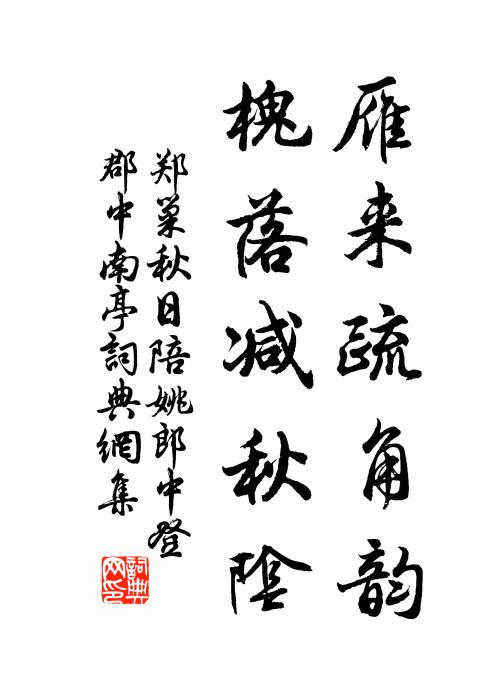 雁来疏角韵
槐落减秋陰
郑巢秋日陪姚郎中登
郡中南亭詞典網集
詞典网印